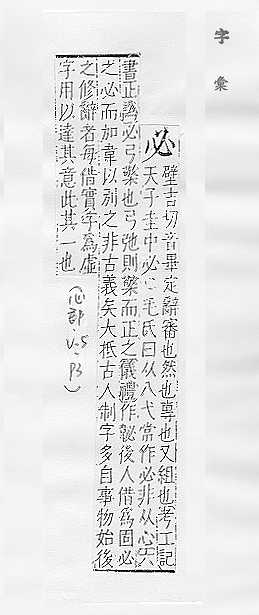 字彙
必
壁吉切音畢定辭審也然也專也又組也考工記
天子圭中必○毛氏曰从八弋當作必非从心六
書正譌必弓檠也弓弛則檠而正之儀禮作柲後人借爲固必
之必而加韋以別之非古義矣大抵古人制字多自事物始後
之修辭者每借實字爲虛
字用以達其意此其一也
(心部·U-5·P3)